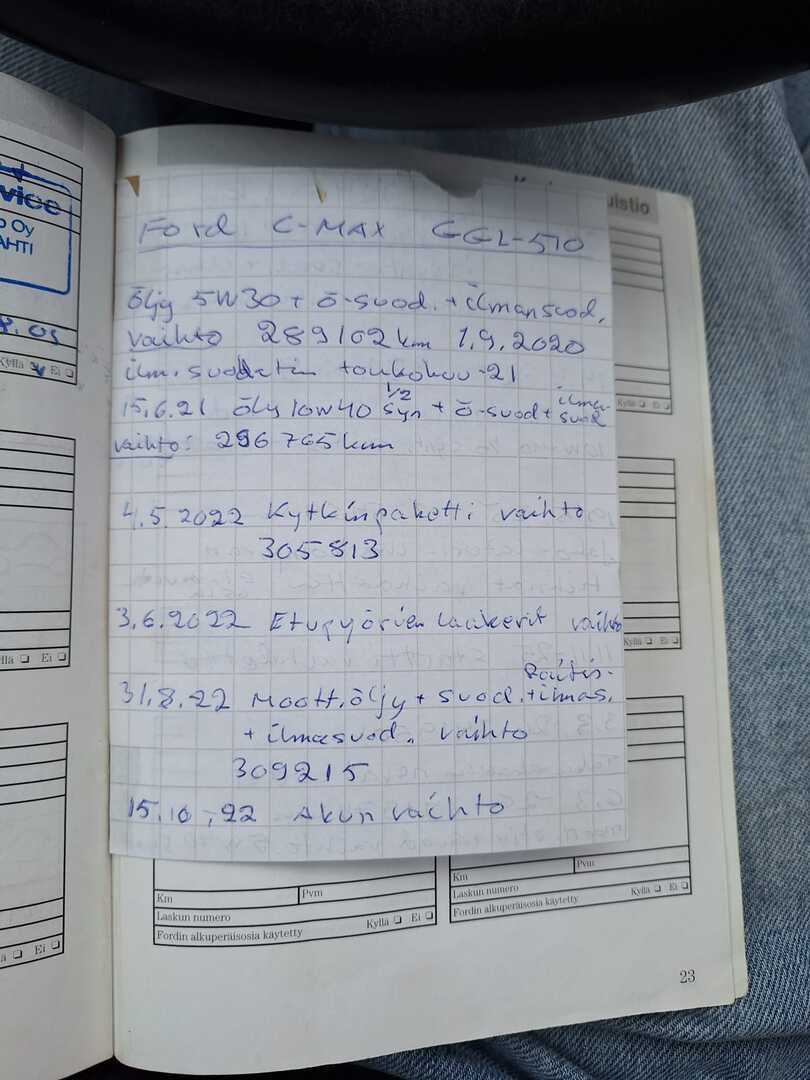 vice
o Oy
AHTI
8.05
Kyllä Ei
uistio
Ford C-MAX GGL-510
öljy 5W30 + ö-suod. + ilmansuod.
vaihto 289102km 1.9.2020
ilm. suodatin toukokuu -21
15.6.21 öljy 10W40 1/2 syn + ö-suod + ilmasuod
vaihto: 296765km
4.5.2022 Kytkinpaketti vaihto
305813
3.6.2022 Etupyörien laakerit vaihto
Raitis-
31.8.22 Moott.öljy + suod. + ilmas.
+ ilmasuod. vaihto
309215
15.10.-22 Akun vaihto
Kyllä Ei
Kyllä Ei
llä Ei
ä Ei
Km Pvm
Laskun numero
Fordin alkuperäisosia käytetty Kyllä Ei
Km Pvm
Laskun numero
Fordin alkuperäisosia käytetty Kyllä Ei
23